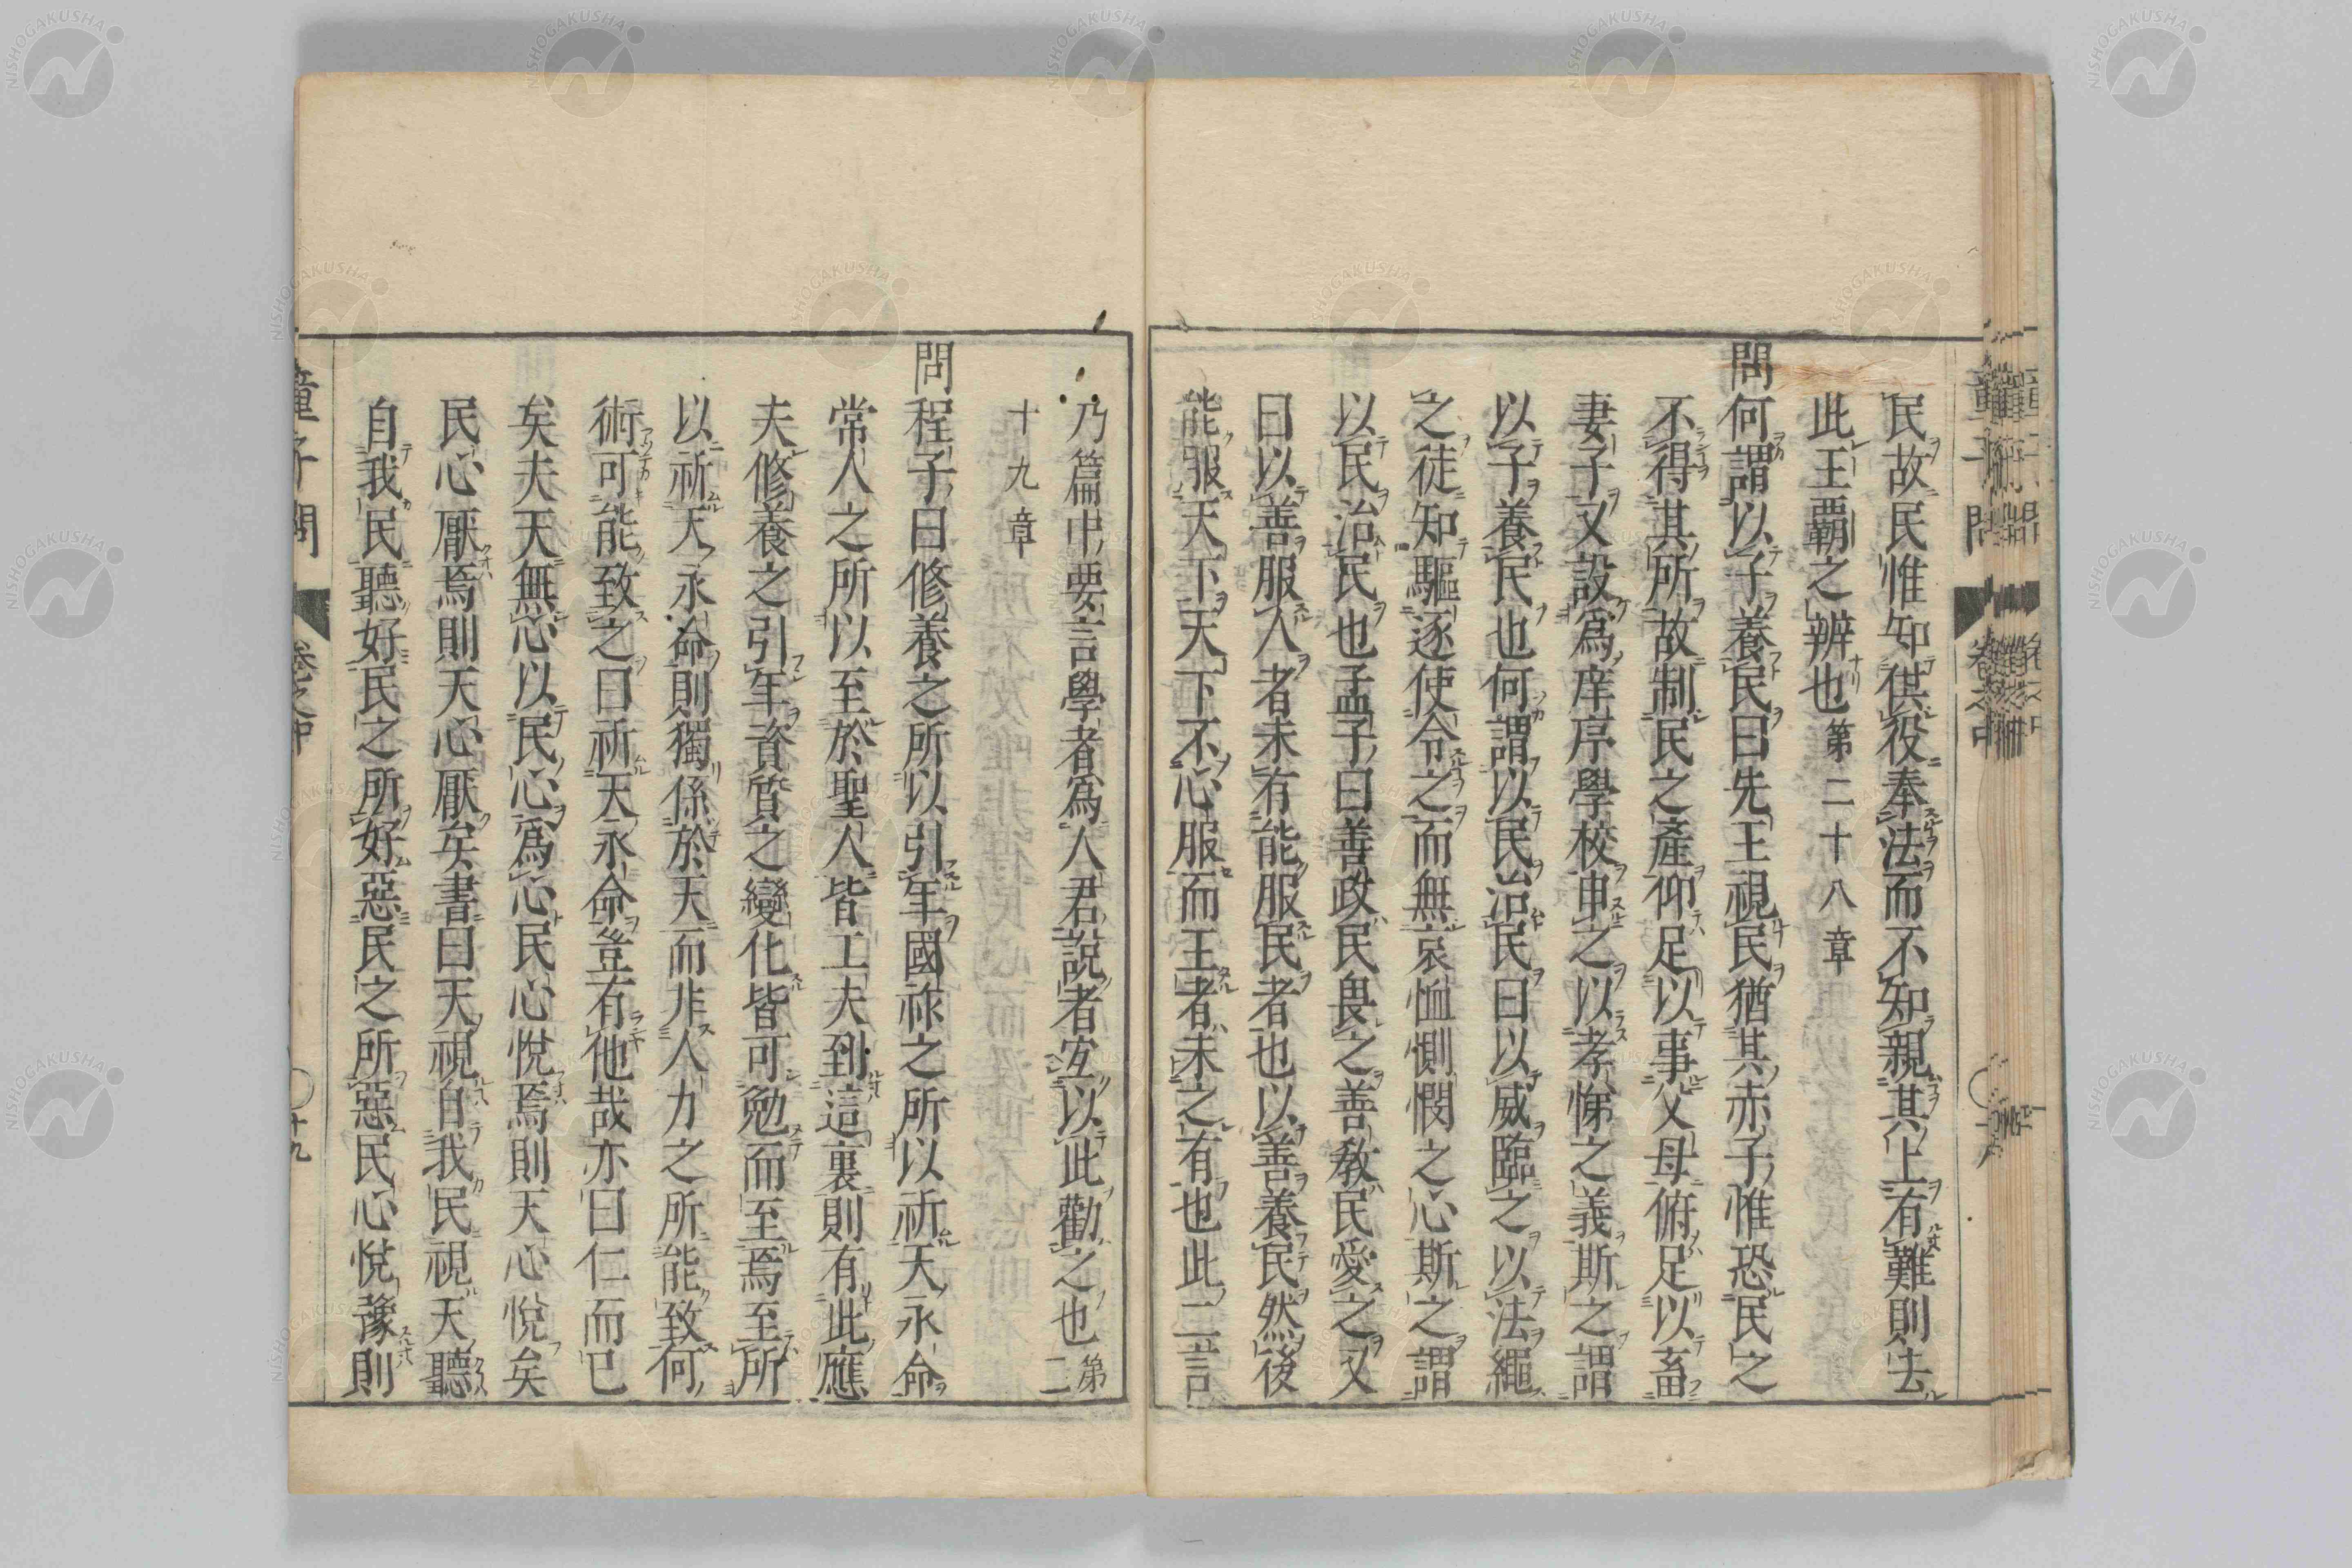 民故民惟知供役奉法而不知親其上有難則去
此王覇之辨也 第二十八章
問何謂以子養民曰先王視民猶其赤子惟恐民之
不得其所故制民之產仰足以事父母俯足以畜
妻子又設爲庠序學校申之以孝悌之義斯之謂
以子養民也何謂以民治民曰以威臨之以法繩
之徒知驅逐使令之而無哀恤惻憫之心斯之謂
以民治民也孟子曰善政民畏之善教民愛之又
曰以善服人者未有能服民者也以善養民然後
能服天下天下不心服而王者未之有也此二言
乃篇中要言學者爲人君說者宐以此勸之也 第二
十九章
問程子曰修養之所以引年國祚之所以祈天永命
常人之所以至於聖人皆工夫到這裏則有此應
夫修養之引年資質之變化皆可勉而至焉至所
以祈天永命則獨係於天而非人力之所能致何
術可能致之曰祈天永命豈有他哉亦曰仁而已
矣夫天無心以民心爲心民心悅焉則天心悅矣
民心厭焉則天心厭矣書曰天視自我民視天聽
自我民聽好民之所好惡民之所惡民心悅豫則
童子問 卷之中 十九
NISHOGAKUSHA